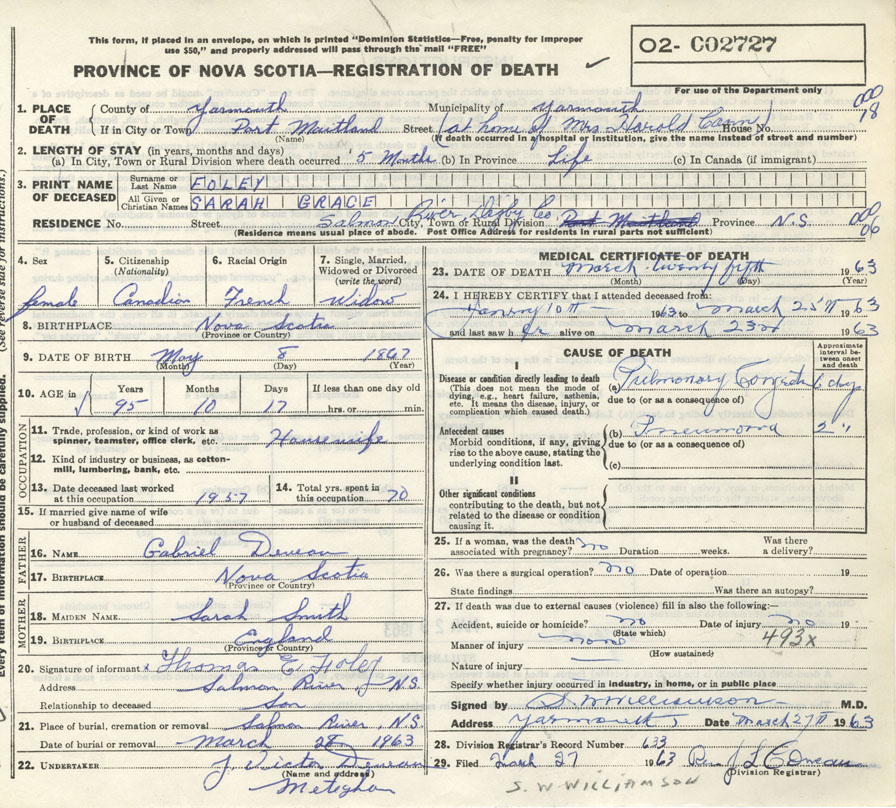 This form, if placed in an envelope, on which is printed "Dominion Statistics—Free, penalty for improper
use $50," and properly addressed will pass through the mail "FREE"
O2- C02727
PROVINCE OF NOVA SCOTIA—REGISTRATION OF DEATH
For use of the Department only
1. PLACE OF DEATH
County of Yarmouth Municipality of Yarmouth
If in City or Town Port Maitland Street (at home of Mrs Harold Cann) House No.
(Name) (If death occurred in a hospital or institution, give the name instead of street and number)
000
18
2. LENGTH OF STAY (in years, months and days)
(a) In City, Town or Rural Division where death occurred 5 Months (b) In Province Life (c) In Canada (if immigrant)
3. PRINT NAME OF DECEASED
Surname or Last Name FOLEY
All Given or Christian Names SARAH GRACE
RESIDENCE No. Street Salmon River, Digby Co. City, Town or Rural Division Port Maitland Province N.S.
(Residence means usual place of abode. Post Office Address for residents in rural parts not sufficient)
000
06
4. Sex
female
5. Citizenship
(Nationality)
Canadian
6. Racial Origin
French
7. Single, Married, Widowed or Divorced
(write the word)
Widow
8. BIRTHPLACE Nova Scotia
(Province or Country)
9. DATE OF BIRTH May 8 1867
(Month) (Day) (Year)
10. AGE in
Years Months Days If less than one day old
95 10 17 hrs. or min.
OCCUPATION
11. Trade, profession, or kind of work as
spinner, teamster, office clerk, etc. Housewife
12. Kind of industry or business, as cotton-
mill, lumbering, bank, etc.
13. Date deceased last worked
at this occupation 1957
14. Total yrs. spent in
this occupation 70
15. If married give name of wife
or husband of deceased
FATHER
16. NAME Gabriel Deveau
17. BIRTHPLACE Nova Scotia
(Province or Country)
MOTHER
18. MAIDEN NAME Sarah Smith
19. BIRTHPLACE England
(Province or Country)
20. Signature of informant x Thomas E. Foley
Address Salmon River, N.S.
Relationship to deceased Son
21. Place of burial, cremation or removal Salmon River, N.S.
Date of burial or removal March 28 1963
22. UNDERTAKER J. Victor Deveau
(Name and address)
Meteghan
MEDICAL CERTIFICATE OF DEATH
23. DATE OF DEATH March twenty fifth 1963
(Month) (Day) (Year)
24. I HEREBY CERTIFY that I attended deceased from:
1963 to March 25th 1963
and last saw her alive on March 23rd 1963
CAUSE OF DEATH
Approximate interval between onset and death
I
Disease or condition directly leading to death
(This does not mean the mode of
dying, e.g., heart failure, asthenia,
etc. It means the disease, injury, or
complication which caused death.)
(a) Pulmonary
due to (or as a consequence of)
Antecedent causes
Morbid conditions, if any, giving
rise to the above cause, stating the
underlying condition last.
(b) Pneumonia 2 "
due to (or as a consequence of)
(c)
II
Other significant conditions
contributing to the death, but not
related to the disease or condition
causing it.
25. If a woman, was the death
associated with pregnancy? no Duration weeks. Was there
a delivery?
26. Was there a surgical operation? no Date of operation 19
State findings Was there an autopsy?
27. If death was due to external causes (violence) fill in also the following:—
Accident, suicide or homicide? no Date of injury no 19
(State which)
493x
Manner of injury none
(How sustained)
Nature of injury
Specify whether injury occurred in industry, in home, or in public place
Signed by S. W Williamson M.D.
Address Yarmouth Date March 27th 1963
28. Division Registrar's Record Number 633
29. Filed March 27 1963 Deveau
(Division Registrar)
S. W WILLIAMSON
(See reverse side for instructions.)
Every item of information should be carefully supplied.